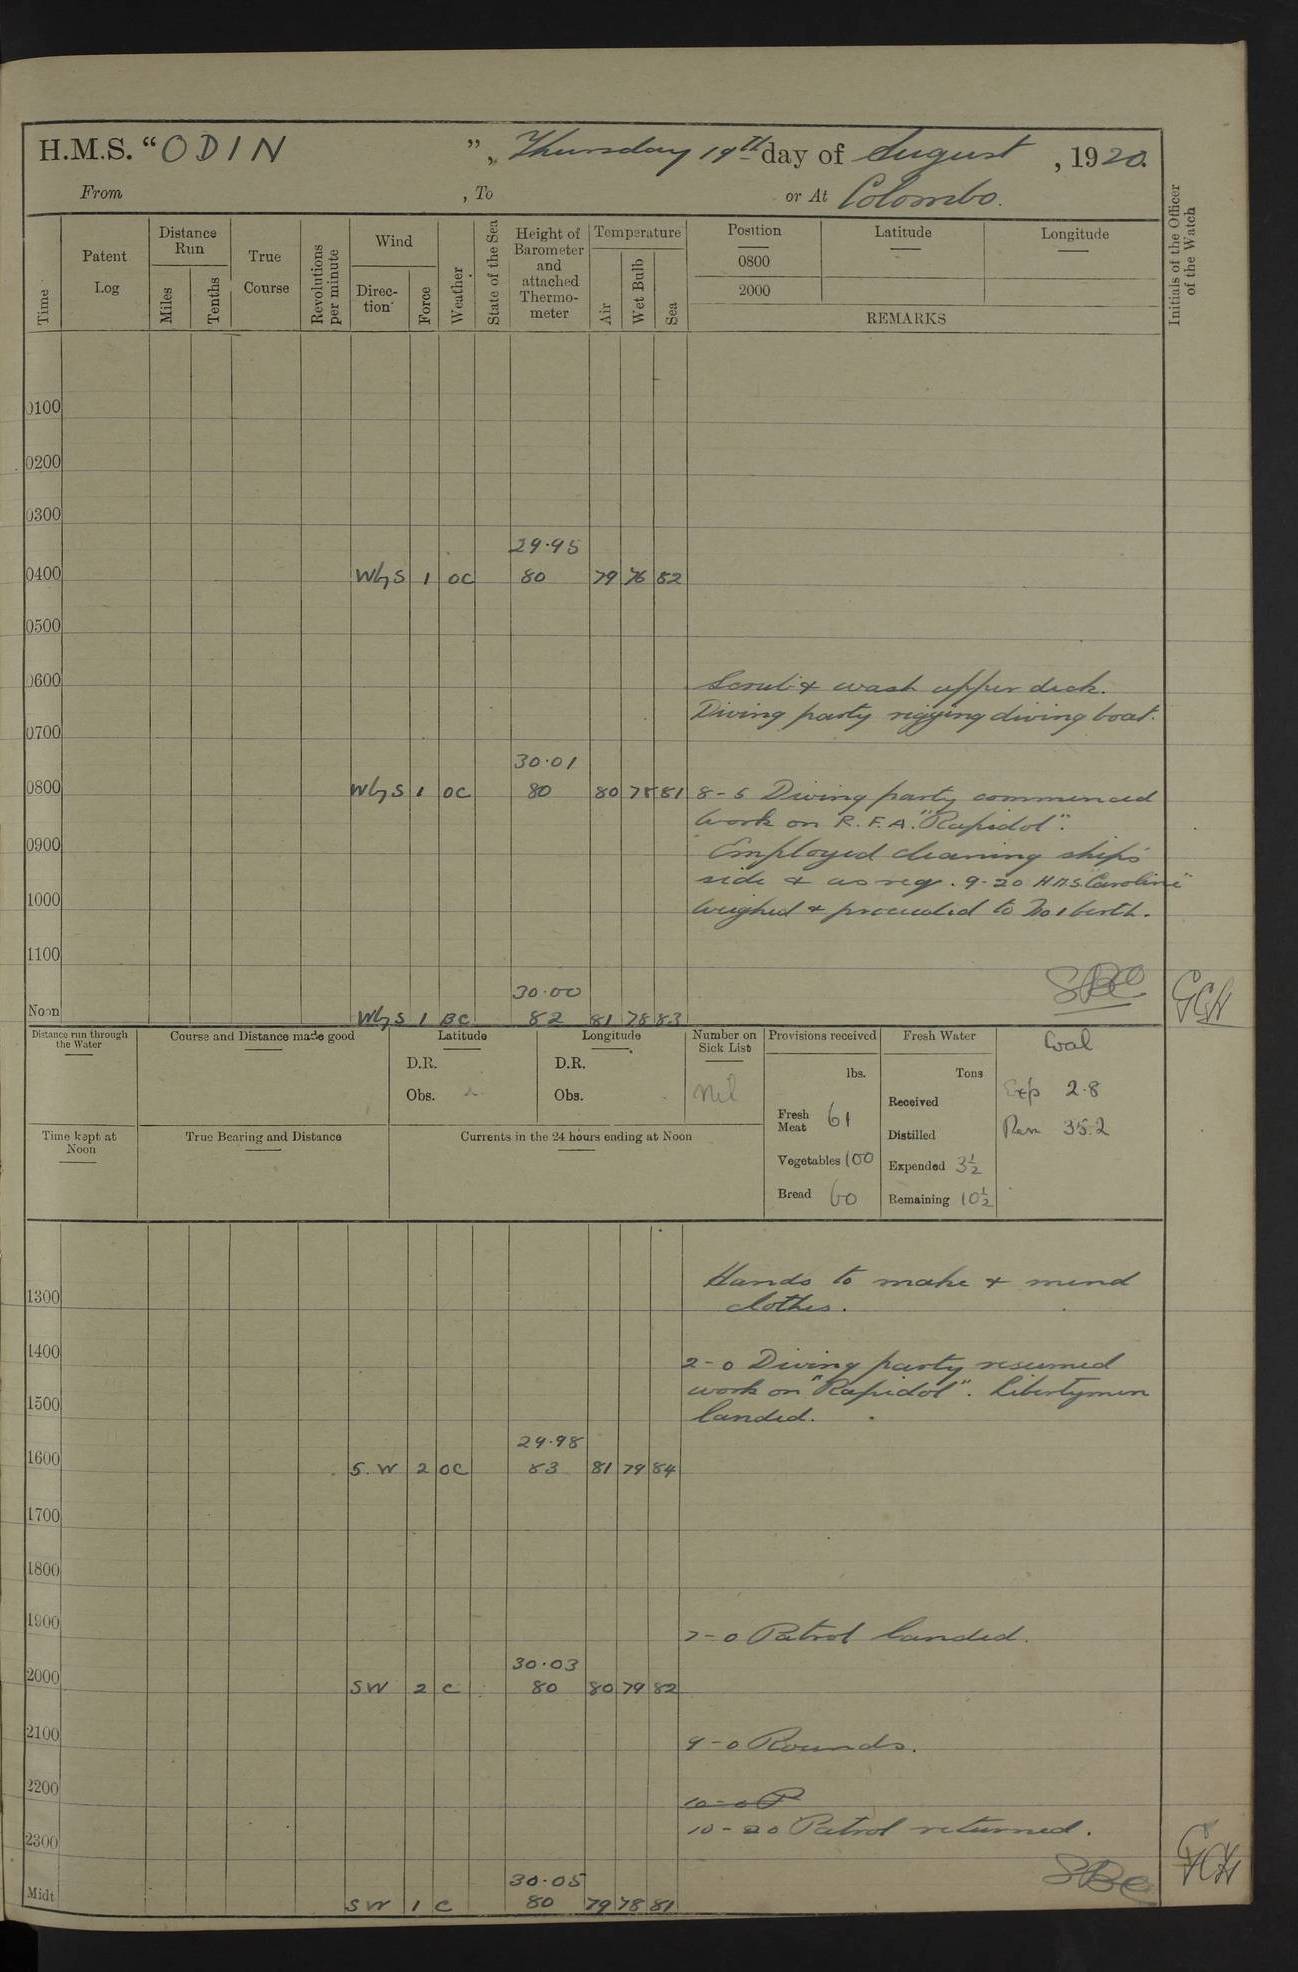 H.M.S. "ODIN", Thursday 19th day of August, 1920.
From , To or At Colombo.
Time
Patent Log
Distance Run
Miles
Tenths
True Course
Revolutions per minute
Wind
Direction
Force
Weather
State of the Sea
Height of Barometer and attached Thermometer
Temperature
Air
Wet Bulb
Sea
Position
0800
2000
Latitude
Longitude
REMARKS
Initials of the Officer of the Watch
0100
0200
0300
29.95
0400 W by S 1 OC 80 79 76 82
0500
0600 Scrub & wash upper deck.
Diving party rigging diving boat.
0700
30.01
0800 W by S 1 OC 80 80 78 81 8-5 Diving party commenced
work on R.F.A. "Rapidol".
0900 Employed cleaning ship's
side & as req. 9-20 H.M.S. "Caroline"
1000 weighed & proceeded to No 1 berth.
1100
30.00
Noon W by S 1 BC 82 81 78 83
Distance run through the Water
Course and Distance made good
Latitude
D.R.
Obs.
Longitude
D.R.
Obs.
Number on Sick List
Nil
Provisions received
lbs.
Fresh Meat 61
Vegetables 100
Bread 60
Fresh Water
Tons
Received
Distilled
Expended 3½
Remaining 10½
Coal
Exp 2.8
Rem 35.2
Time kept at Noon
True Bearing and Distance
Currents in the 24 hours ending at Noon
Hands to make & mend
1300 clothes.
1400 2-0 Diving party resumed
work on "Rapidol". Libertymen
1500 landed.
29.98
1600 S.W 2 OC 83 81 79 84
1700
1800
1900 7-0 Patrol landed.
30.03
2000 SW 2 C 80 80 79 82
2100 9-0 Rounds.
2200 10-0 P
10-20 Patrol returned.
2300
30.05
Midt SW 1 C 80 79 78 81